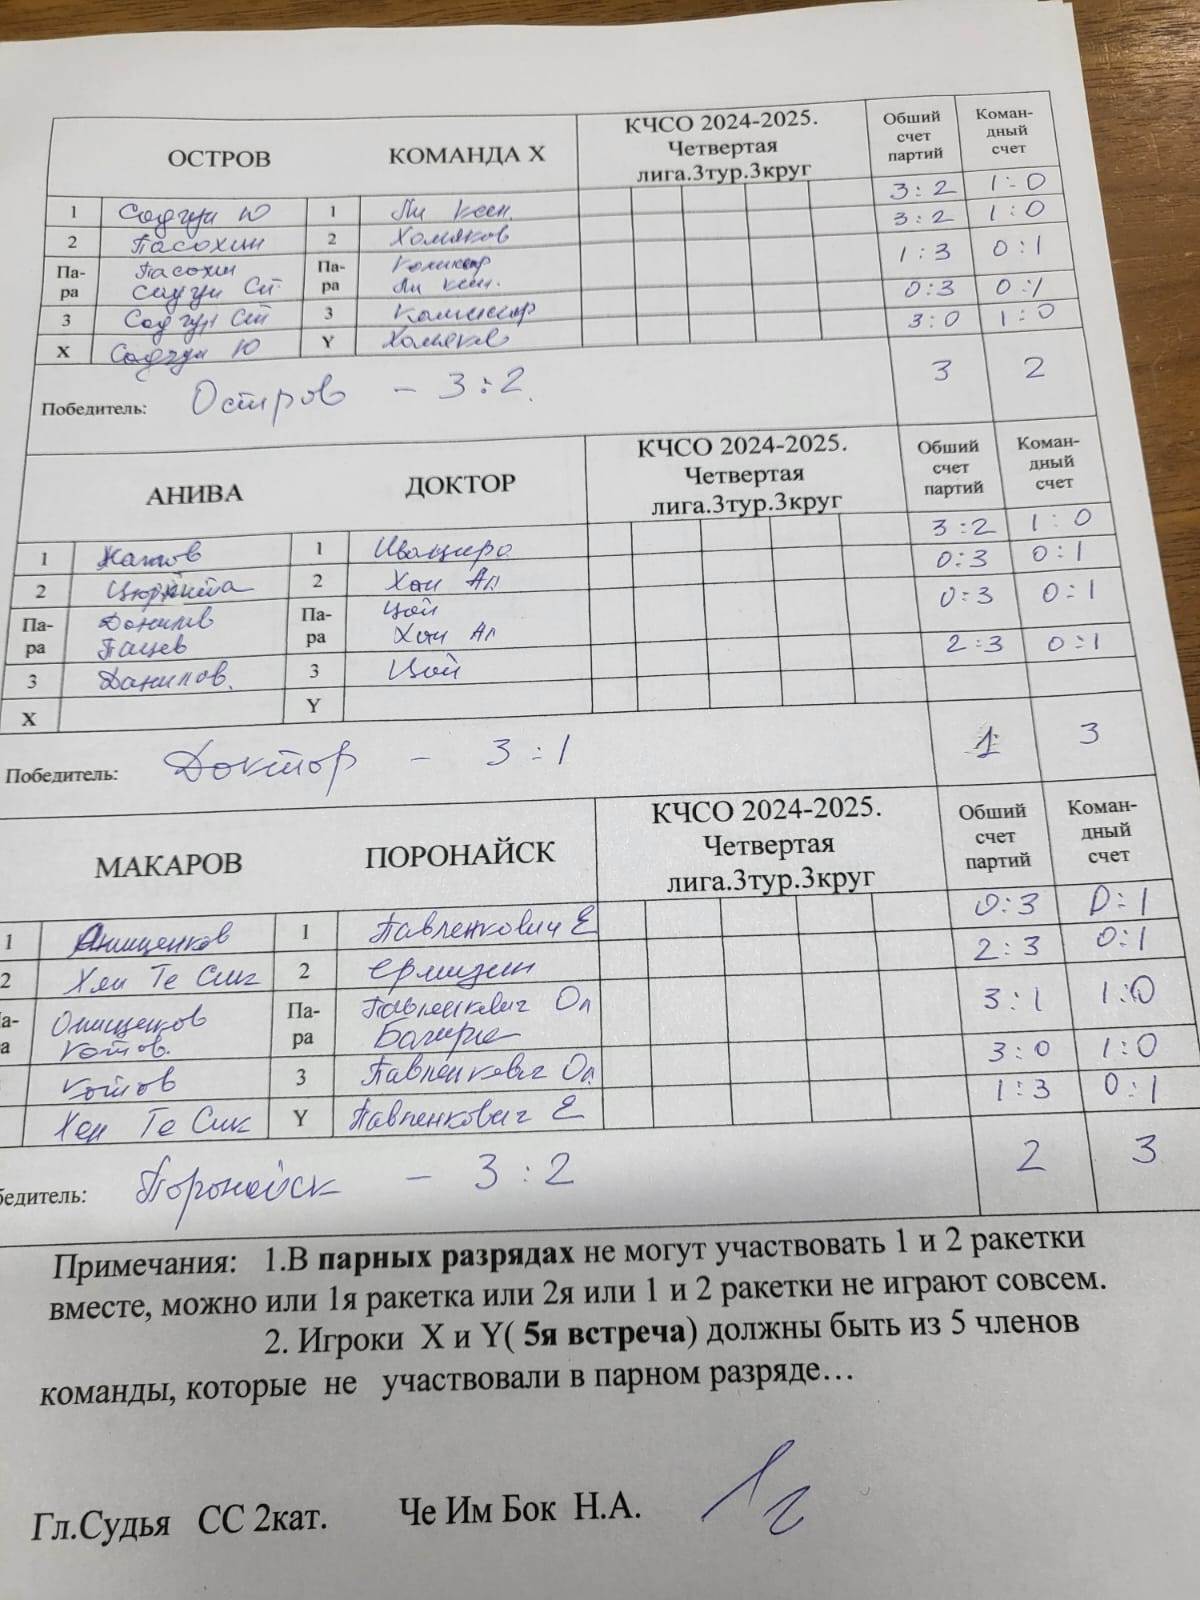 ОСТРОВ КОМАНДА Х КЧСО 2024-2025. Четвертая лига.3тур.3круг Обший счет партий Коман-дный счет
1 Садгун Ю 1 Ли Ксен. 3:2 1:0
2 Пасохин 2 Хомяков 3:2 1:0
Па-ра Пасохин 
Садгун Ст Па-ра Ли Ксен. 1:3 0:1
3 Садгун Ст 3 0:3 0:1
Х Садгун Ю Y Хомяков 3:0 1:0
Победитель: Остров - 3:2. 3 2
АНИВА ДОКТОР КЧСО 2024-2025. Четвертая лига.3тур.3круг Обший счет партий Коман-дный счет
1 1 3:2 1:0
2 2 Хан Ал 0:3 0:1
Па-ра Данилов Па-ра Цой 0:3 0:1
Пащев Хан Ал
3 Данилов. 3 Цой 2:3 0:1
Х Y
Победитель: Доктор - 3:1 1 3
МАКАРОВ ПОРОНАЙСК КЧСО 2024-2025. Четвертая лига.3тур.3круг Обший счет партий Коман-дный счет
1 Онищенков 1 Павленкович Е 0:3 0:1
2 Хен Те Сик 2 Ермизин 2:3 0:1
а- Онищенков Па- Павленкович Ол 3:1 1:0
а Котов. ра
Котов 3 Павленкович Ол 3:0 1:0
Хен Те Сик Y Павленкович Е 1:3 0:1
бедитель: Поронайск - 3:2 2 3
Примечания: 1.В парных разрядах не могут участвовать 1 и 2 ракетки
вместе, можно или 1я ракетка или 2я или 1 и 2 ракетки не играют совсем.
2. Игроки Х и Y( 5я встреча) должны быть из 5 членов
команды, которые не участвовали в парном разряде…
Гл.Судья СС 2кат. Че Им Бок Н.А.